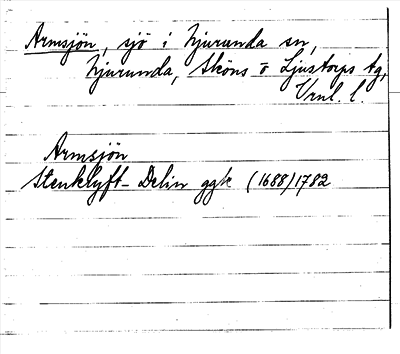 Armsjön, sjö i Njurunda sn,
Njurunda, Sköns o Ljustorps tg,
Vnl. l.
Armsjön
Stenklyft-Delin ggk (1688)1782